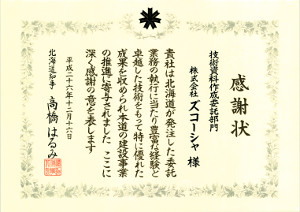 感謝状
技術資料作成委託部門
株式会社 ズコーシャ 様
貴社は北海道が発注した委託
業務の執行に当たり豊富な経験と
卓越した技術をもって特に優れた
成果を収められ本道の建設事業
の推進に寄与されました ここに
深く感謝の意を表します
平成二十六年十二月十六日
北海道知事 高橋はるみ